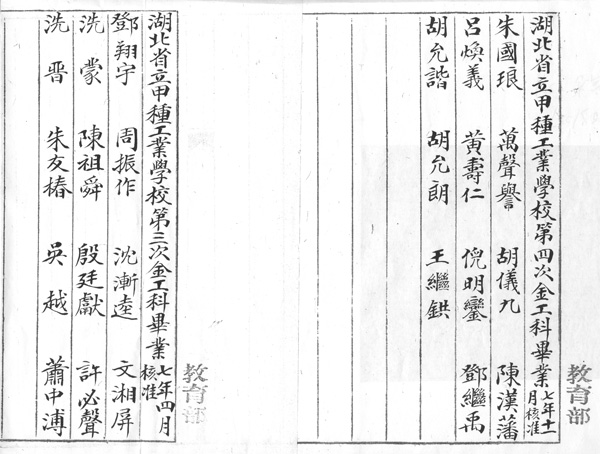 湖北省立甲種工業學校第四次金工科畢業七年十一月核准
朱國琅 萬聲譽 胡儀九 陳漢藩
呂煥義 黃壽仁 倪明鑾 鄧繼禹
胡允諧 胡允朗 王繼鉷
教育部
湖北省立甲種工業學校第三次金工科畢業七年四月核准
鄧翔宇 周振作 沈漸逵 文湘屏
洗蒙 陳祖舜 殷廷獻 許必聲
洗晋 朱友椿 吳越 蕭中溥
教育部